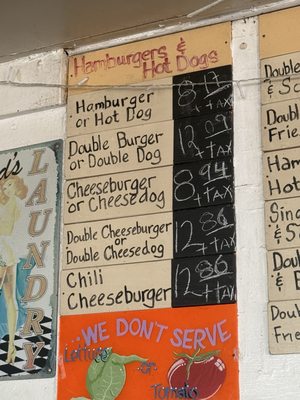 Hamburgers &
Hot Dogs
Hamburger
or Hot Dog
8.17
+TAX
Double Burger
or Double Dog
12.09
+TAX
Cheeseburger
or Cheesedog
8.94
+TAX
Double Cheeseburger
or
Double Cheesedog
12.86
+TAX
Chili
Cheeseburger
12.86
+TAX
WE DON'T SERVE
Lettuce or
Tomato
LAUNDRY
Double
&
Double
Frie
Ham
Hot
Sin
& S
Dou
& B
Double
Frie